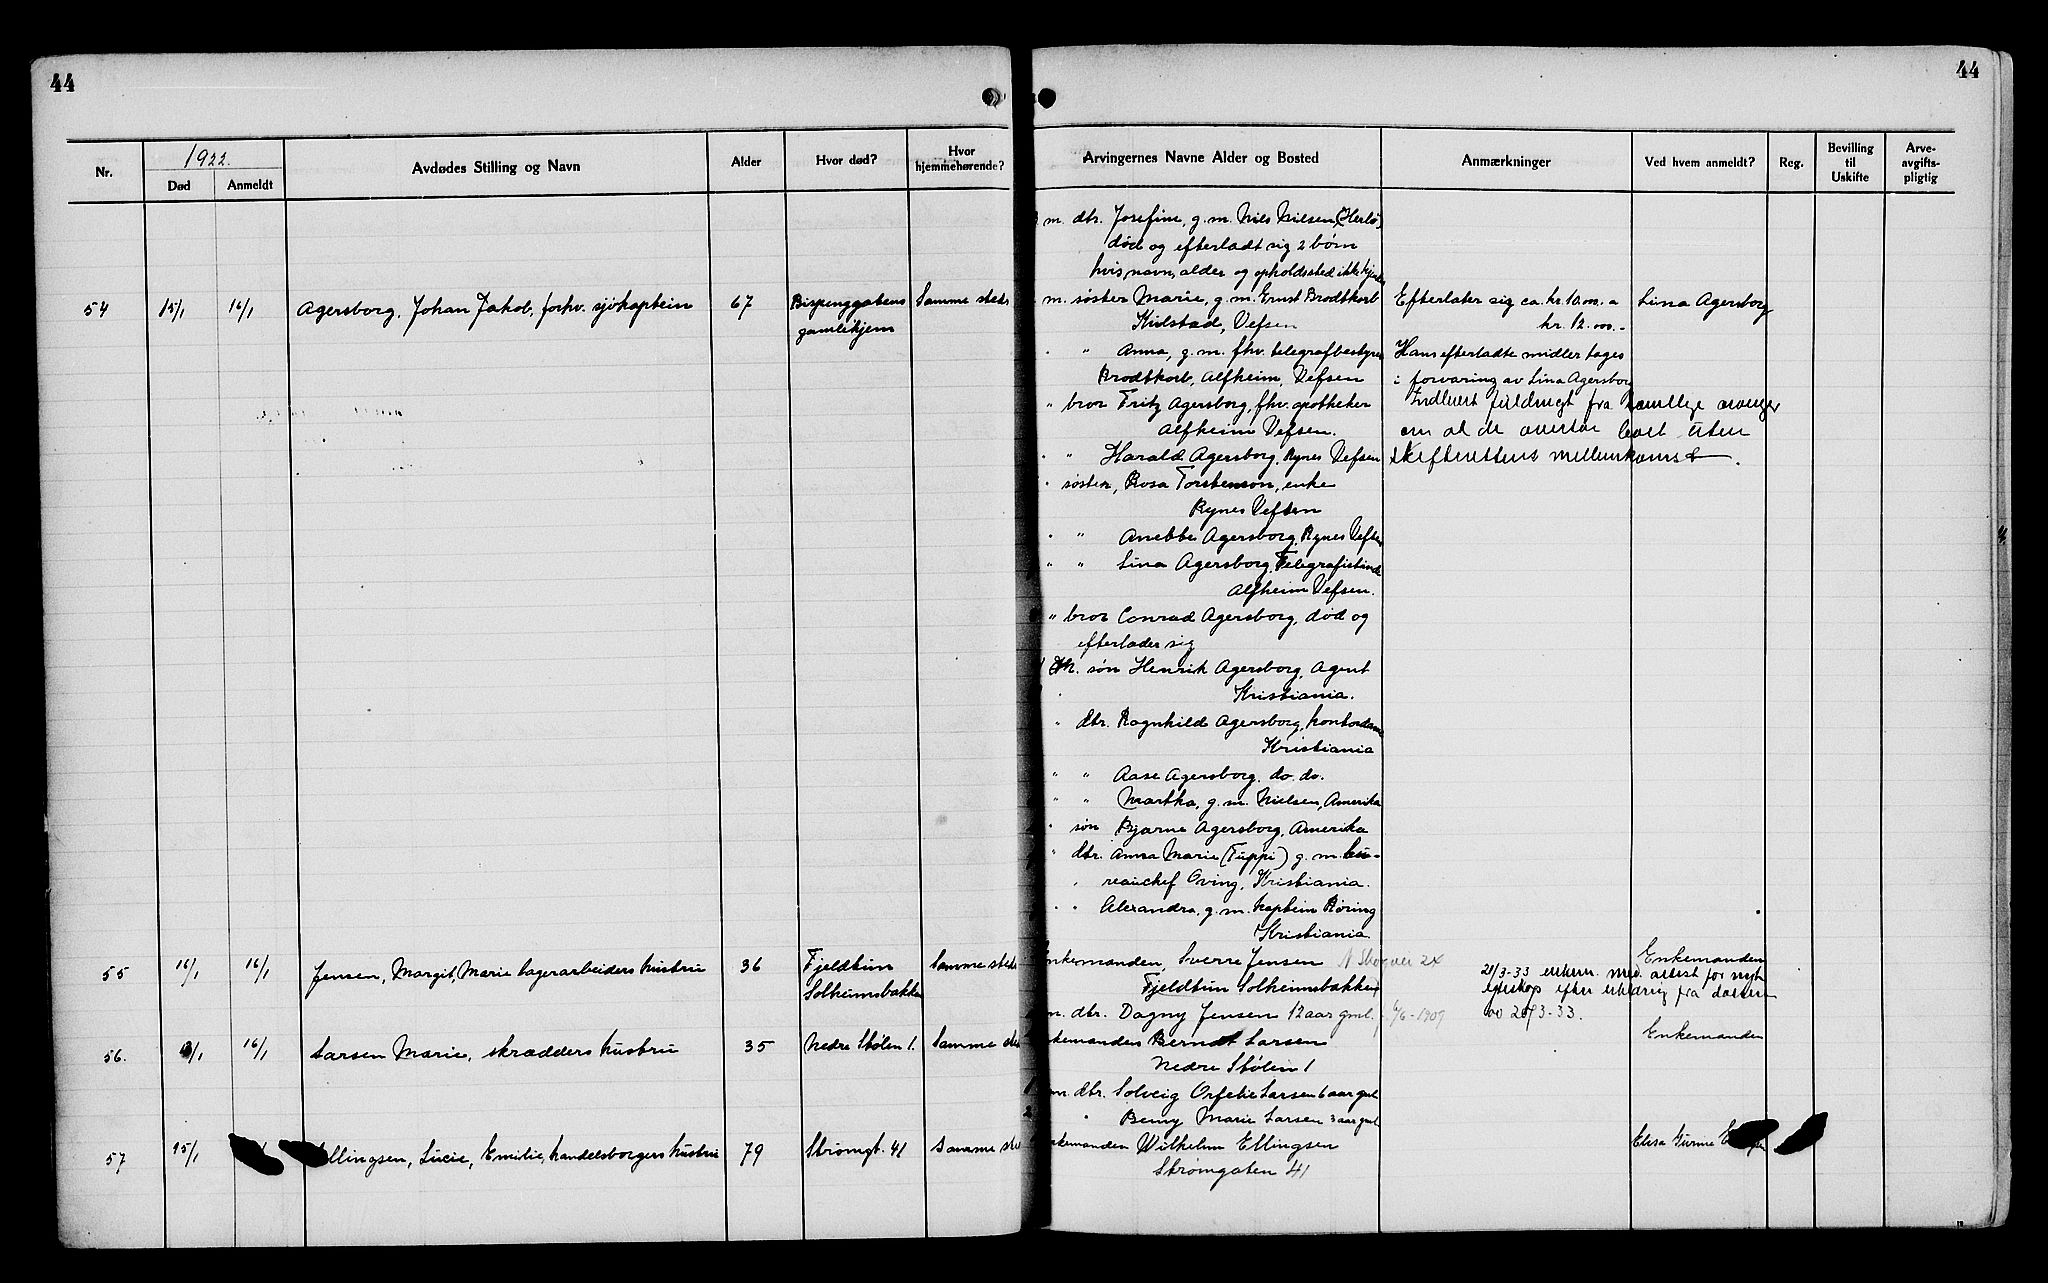 44
44
1922.
Nr. Død Anmeldt Avdødes Stilling og Navn Alder Hvor død? Hvor hjemmehørende? Arvingernes Navne Alder og Bosted Anmærkninger Ved hvem anmeldt? Reg. Bevilling til Uskifte Arve-avgifts-pligtig
m. dtr. Josefine, g. m. Nils Nielsen, Herlø,
død og efterladt sig 2 børn
hvis navn, alder og opholdssted ikke
54 15/1 16/1 Agersborg, Johan Jakob, forhv. sjökaptein 67 Bispenggatens Samme sted m. søster Marie, g. m. Ernst Brodtkorb Efterlater sig ca. kr. 10.000. a Lina Agersborg
gamlehjem Kulstad, Vefsen kr. 12.000.-
" Anna, g. m. fhv. telegrafbestyrer Hans efterladte midler tages
Brodtkorb, Alfheim, Vefsen i forvaring av Lina Agersborg
" bror Fritz Agersborg, fhv. apotheker Indlevert fuldmagt fra samtlige arvinger
Alfheim Vefsen. om at de overtar boet uten
" " Harald Agersborg, Rynes Vefsen skifterettens mellemkomst.
" søster, Rosa Torstenson, enke
Rynes Vefsen
" " Anebbe Agersborg, Rynes Vefsen
" " Lina Agersborg, Telegrafistinde
Alfheim Vefsen.
" bror Conrad Agersborg, død og
efterlader sig
m. søn Henrik Agersborg, Agent
Kristiania.
" dtr. Ragnhild Agersborg, kontordame
Kristiania
" " Aase Agersborg, do. do.
" " Martha, g. m. Nielsen, Amerika
" søn Bjarne Agersborg, Amerika
" dtr. Anna Marie (Tuppi) g. m. bu-
reauchef Oving, Kristiania.
" " Alexandra, g. m. kaptein Røring
Kristiania
55 16/1 16/1 Jensen, Margit, Marie lagerarbeiders hustru 36 Fjeldtun Samme sted Enkemanden, Sverre Jensen Enkemanden
Solheimsbakken Fjeldtun Solheimsbakken 21/3-33 med attest for
m. dtr. Dagny Jensen 12 aar gml. 6/6-1909 efter fra
56. 16/1 Larsen Marie, skrædders hustru 35 Nedre Stølen 1. Samme sted Enkemanden Berndt Larsen Enkemanden
Nedre Stølen 1
1 m. dtr. Solveig Orfelie Larsen 6 aar gml.
2 " Beny Marie Larsen 3 aar gml.
57 15/1 Ellingsen, Lucie, Emilie, handelsborgers hustru 79 Strømgt. 41 Samme sted Enkemanden Wilhelm Ellingsen Elisa Gurine
Strømgaten 41